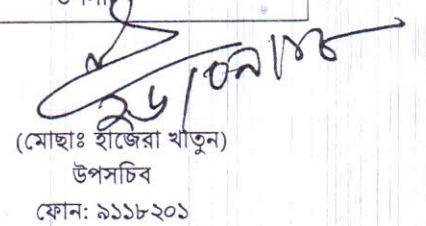 (মোছাঃ হাজেরা খাতুন)
উপসচিব
ফোন: ৯১১৮২০১